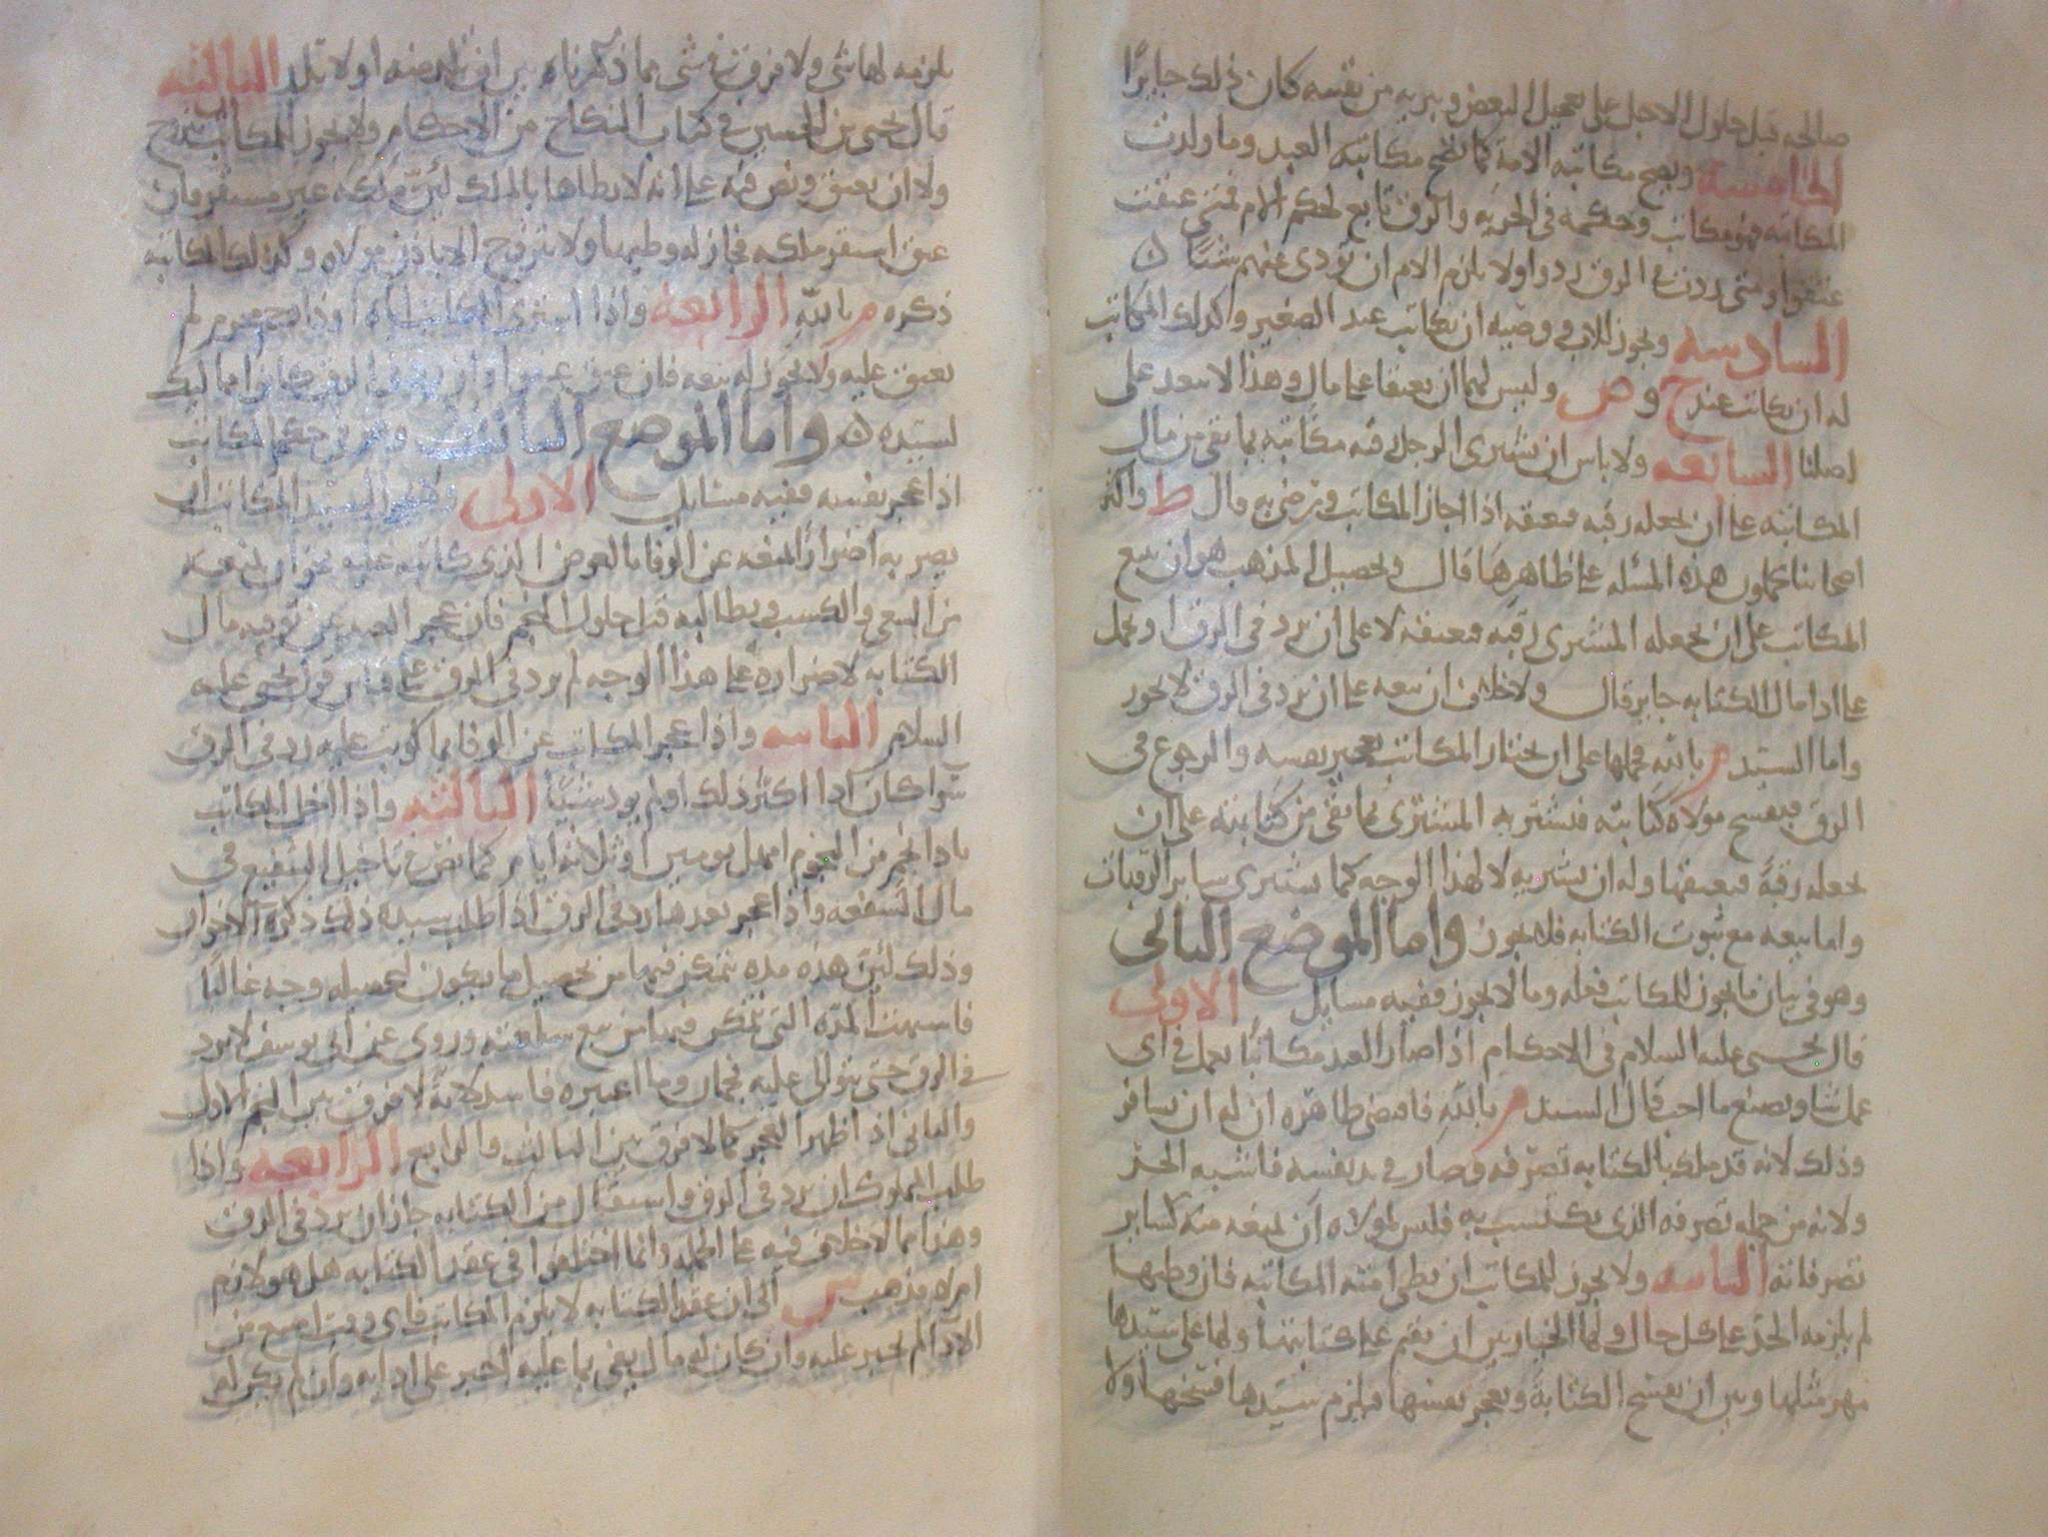 صالحه قبل حلول الاجل على تعجيل البعض ويبريه من نفسه كان ذلك جايزًا
الخامسه ويصح مكاتبه الامة كما تصح مكاتبه العبد وما ولدت
المكاتبه فهو مكاتب وحكمه فى الحريه والرق تابع لحكم الام فمتى عتقت
عتقوا ومتى ردت فى الرق ردوا ولا يلزم الام ان تودى عنهم شيئا
السادسه ويجوز للاب ووصيه ان يكاتب عبد الصغير وكذلك المكاتب
له ان يكاتب عند ح و ص وليس لهما ان يعتقا على مال وهذا لا يبعد على
اصلنا السابعه ولا باس ان يشترى الرجل رقبه مكاتبه بما بقى من مال
المكاتبه على ان يجعله رقبه فيعتقه اذا اجاز المكاتب ورضى به قال ط واكثر
اصحابنا يحملون هذه المسئله على ظاهرها قال وتحصيل المذهب هو ان بيع
المكاتب على ان يجعله المشترى رقبه فيعتقه لا على ان يرد فى الرق او يحمل
على ادا مال الكتابه جايز قال ولا خلاف ان بيعه على ان يرد فى الرق لا يجوز
واما السيد م بالله فحملها على ان يختار المكاتب تعجيز نفسه والرجوع فى
الرق فيفسخ مولاه كتابته فيشتريه المشترى بما بقى من كتابته على ان
يجعله رقبةً فيعتقها وله ان يشتريه لا لهذا الوجه كما يشترى ساير الرقبات
واما بيعه مع ثبوت الكتابه فلا يجوز واما الموضع الثانى
وهو فى بيان ما يجوز للمكاتب فعله وما لا يجوز ففيه مسايل الاولى
قال يحيى عليه السلام فى الاحكام اذا صار العبد مكاتبًا يعمل فى اى
عمل شا ويصنع ما احب قال السيد م بالله فاقتضى ظاهره ان له ان يسافر
وذلك لانه قد ملك بالكتابه تصرفه وصار فى يد نفسه فاشبه الحر
ولانه من جمله تصرفه الذى يكتسب به فليس لمولاه ان يمنعه منه كساير
تصرفاته الثانيه ولا يجوز للمكاتب ان يطى امته المكاتبه فان وطيها
لم يلزمه الحد على كل حال ولها الخيار بين ان تقيم على كتابتها ولها على سيدها
مهر مثلها وبين ان تفسخ الكتابة وتعجز نفسها فيلزم سيدها فسخها ولا
يلزمه لها شى ولا فرق فى شى مما ذكرناه بين ان تلد منه او لا تلد الثالثه
قال يحيى بن الحسين فى كتاب النكاح من الاحكام ولا يجوز للمكاتب يتزوج
ولا ان يعتق ونص فيه على انه لا يطاها بالملك لئن ملكه غير مستقر فان
عتق استقر ملكه فجاز له وطيها ولا يتزوج الا باذن مولاه وكذلك المكاتبه
ذكره م بالله الرابعه واذا اشترى المكاتب اباه او ذا رحم محرم لم
يعتق عليه ولا يجوز له بيعه فان عتق عتقوا وان رد فى الرق كانوا مماليك
لسيده واما الموضع الثالث وهو فى حكم المكاتب
اذا عجز نفسه ففيه مسايل الاولى وليس لسيد المكاتب ان
يضر به اضرارًا لمنعه عن الوفا بالعوض الذى كاتبه عليه نحو ان يمنعه
من السعى والكسب ويطالبه قبل حلول النجم فان عجز العبد عن توفيه مال
الكتابه لاضراره على هذا الوجه لم يرد فى الرق على قياس قول يحيى عليه
السلام الثانيه واذا عجز المكاتب عن الوفا بما كوتب عليه رد فى الرق
سوا كان ادا اكثر ذلك او لم يود شيئًا الثالثه واذا اخل المكاتب
بادا نجم من النجوم امهل يومين او ثلاثه ايام كما نص فى تاجيل الشفيع فى
مال الشفعه واذا عجز بعدها رد فى الرق اذا طلب سيده ذلك ذكره الاخوان
وذلك لئن هذه مده يتمكن فيها من تحصيل ما يكون لتحصيله وجه غالبًا
فاشبهت المده التى يتمكن فيها من بيع سلعته وروى عن ابى يوسف لا يرد
فى الرق حتى يتوالى عليه نجمان وما اعتبره فاسد لانه لا فرق بين النجم الاول
والثانى اذا ظهر العجز كما لا فرق بين الثالث والرابع الرابعه واذا
طلب المملوك ان يرد فى الرق واستقال من الكتابه جاز ان يرد فى الرق
وهذا مما لا خلاف فيه على الجمله وانما اختلفوا فى عقد الكتابه هل هو لازم
ام لا فذهب ش الى ان عقد الكتابه لا يلزم المكاتب فاى وقت امتنع من
الادا لم يجبر عليه وان كان له مال يفى بما عليه اجبر على ادايه وان لم يكن له